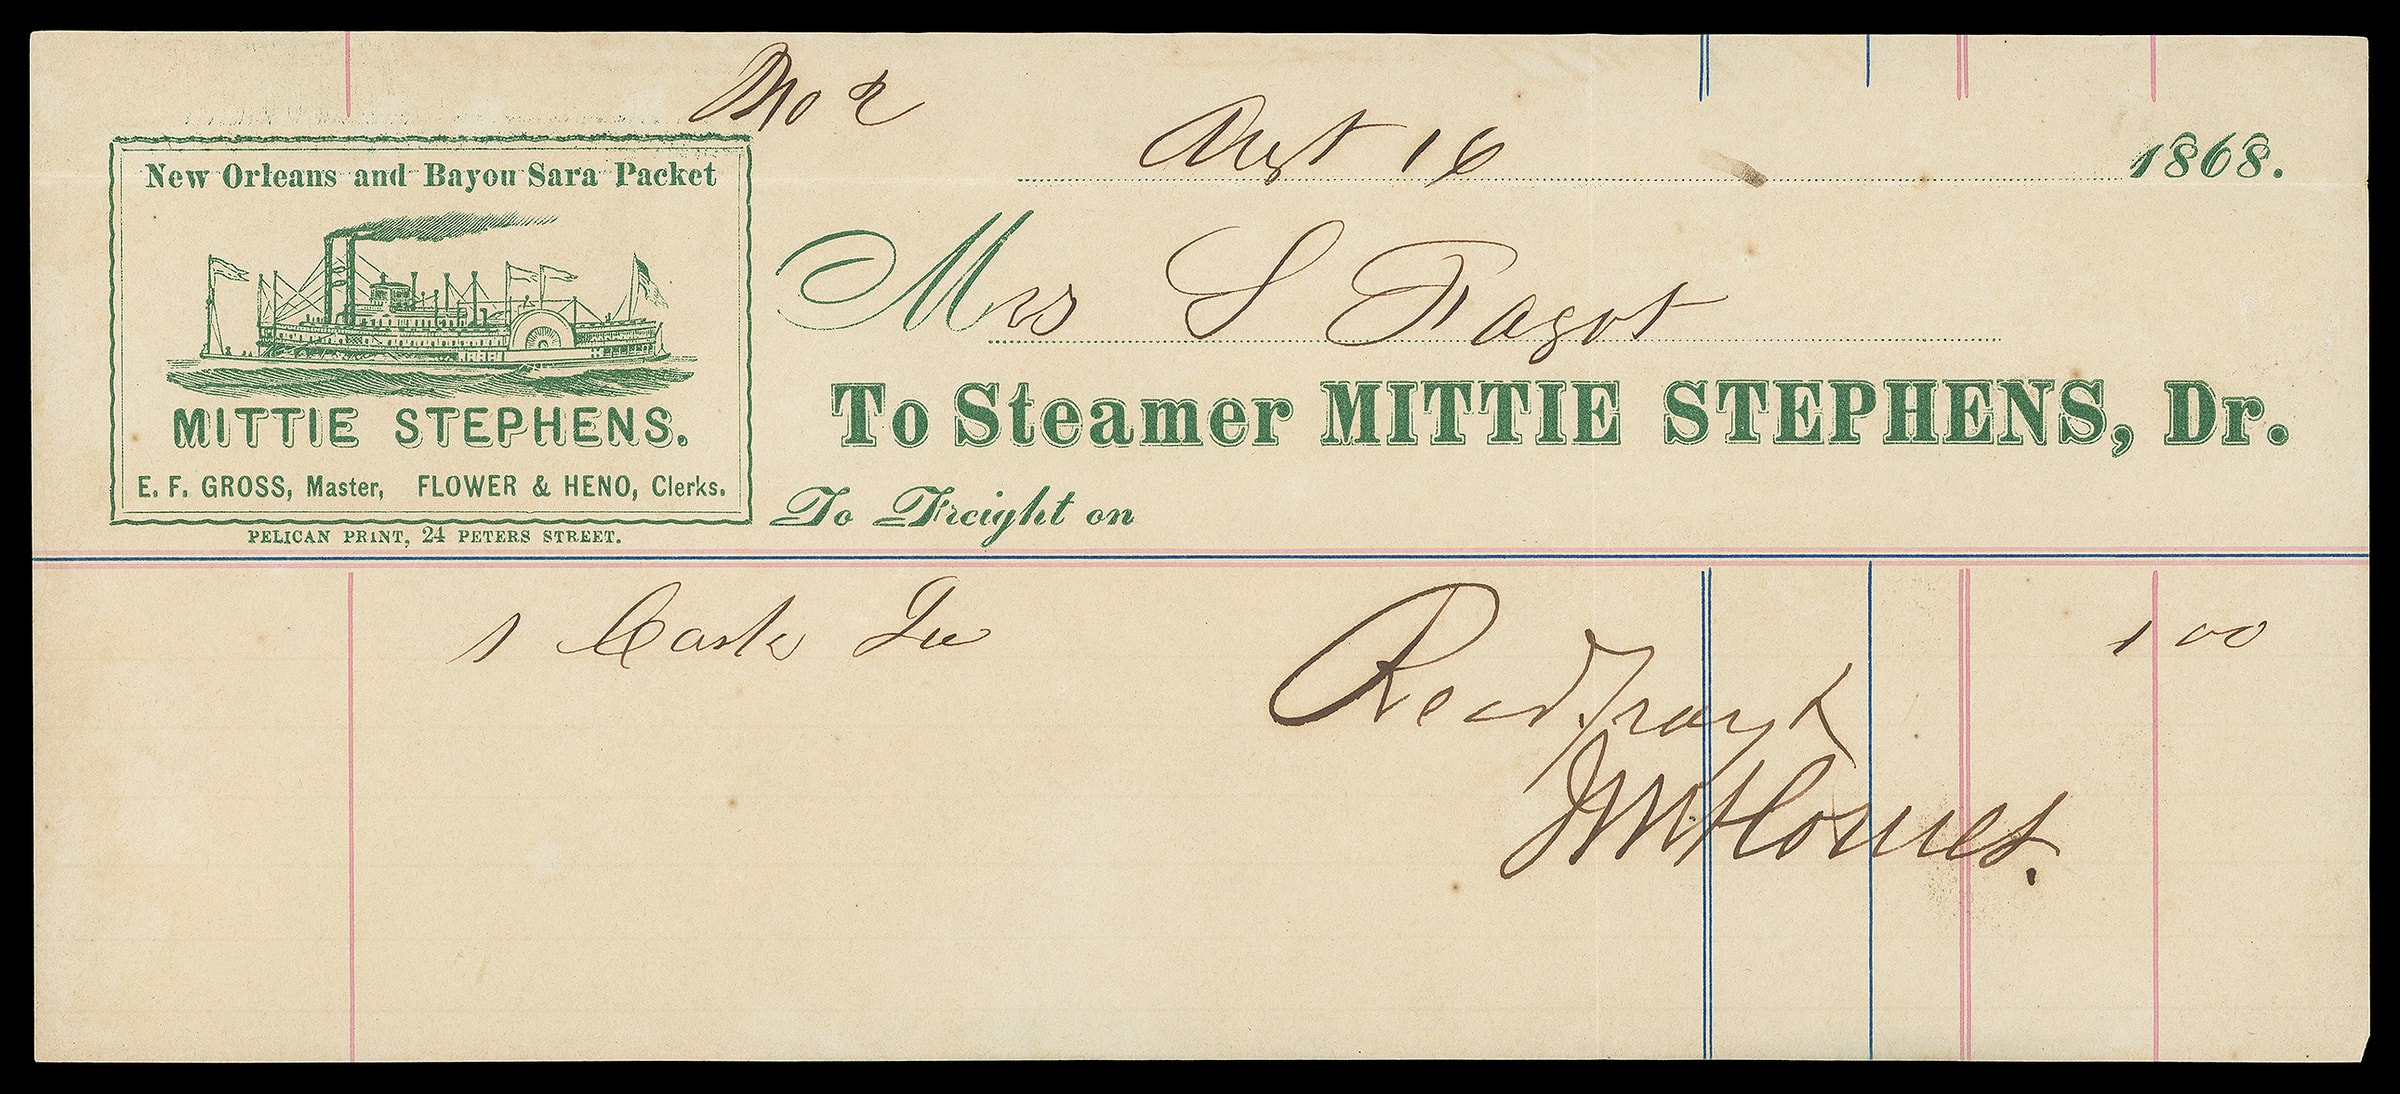 No 2
Augt 16 1868.
New Orleans and Bayou Sara Packet
MITTIE STEPHENS.
E. F. GROSS, Master, FLOWER & HENO, Clerks.
PELICAN PRINT, 24 PETERS STREET.
Mrs S Fagot
To Steamer MITTIE STEPHENS, Dr.
To Freight on
1 Cask 1 00
Recd Payt
Holmes.